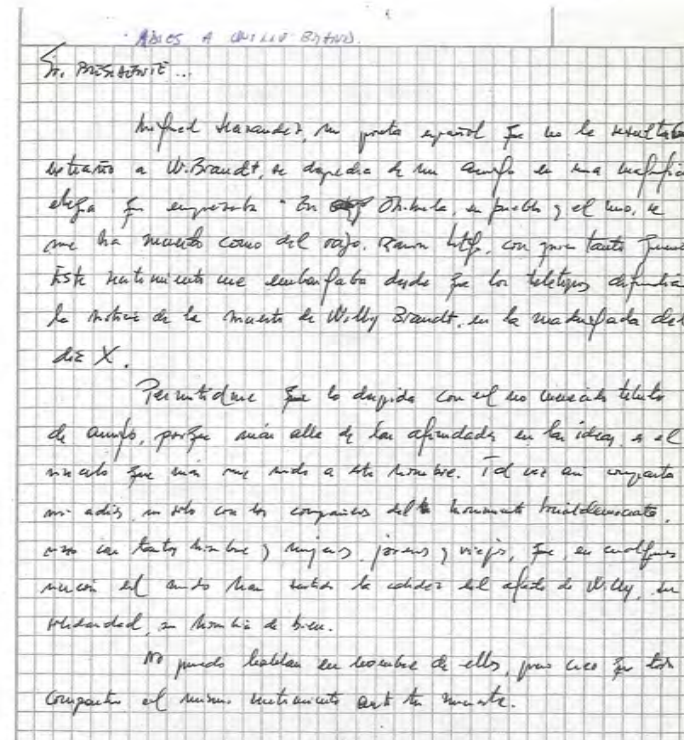 ADIOS A WILLY BRANDT.
Sr. PRESIDENTE...
Miguel Hernandez, un poeta español que no le resultaba
extraño a W. Brandt, se despedia de un amigo en una magnifica
elegia que empezaba "En Orihuela, su pueblo y el mio, se
me ha muerto como del rayo, Ramon Sijé, con quien tanto queria
Este sentimiento me embargaba desde que los teletipos difundian
la noticia de la muerte de Willy Brandt, en la madrugada del
dia X.
Permitidme que lo despida con el no merecido titulo
de amigo, porque más alla de las afinidades en las ideas, es el
vinculo que más me unio a este hombre. Tal vez asi comparta
mi adios, no solo con los compañeros del movimiento socialdemocrata,
sino con tantos hombres y mujeres, jovenes y viejos, que, en cualquier
rincon del mundo han sentido la calidez del afecto de Willy, su
solidaridad, su hombria de bien.
No puedo hablar en nombre de ellos, pero creo que todos
comparten el mismo sentimiento ante tu muerte.